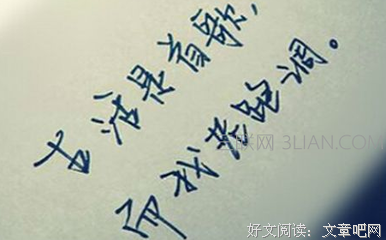 生活是首歌，
而我老跑调。
三联网 3LIAN.COM
好文阅读：文章吧网